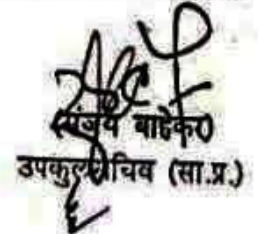 (संजय बाहेकर)
उपकुलसचिव (सा.प्र.)